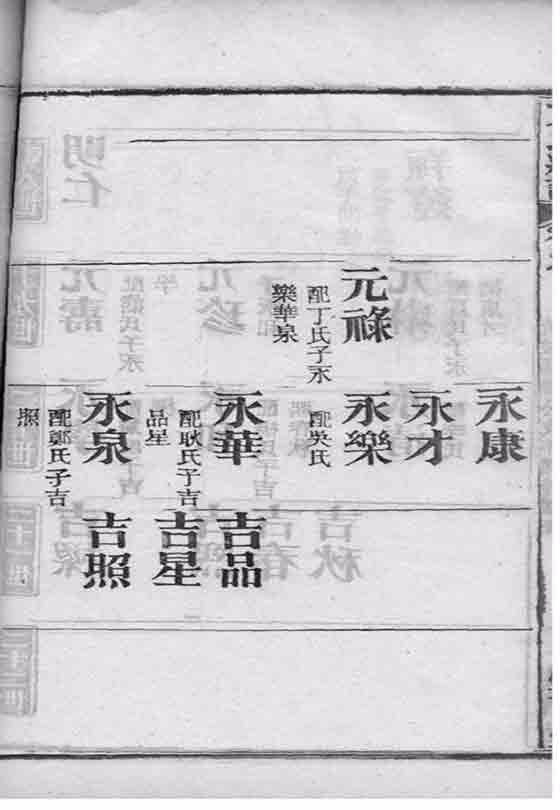 元祿
配丁氏子永
樂華泉
永康
永才
永樂
配吳氏
永華
配耿氏子吉
品星
永泉
配鄭氏子吉
照
吉品
吉星
吉照